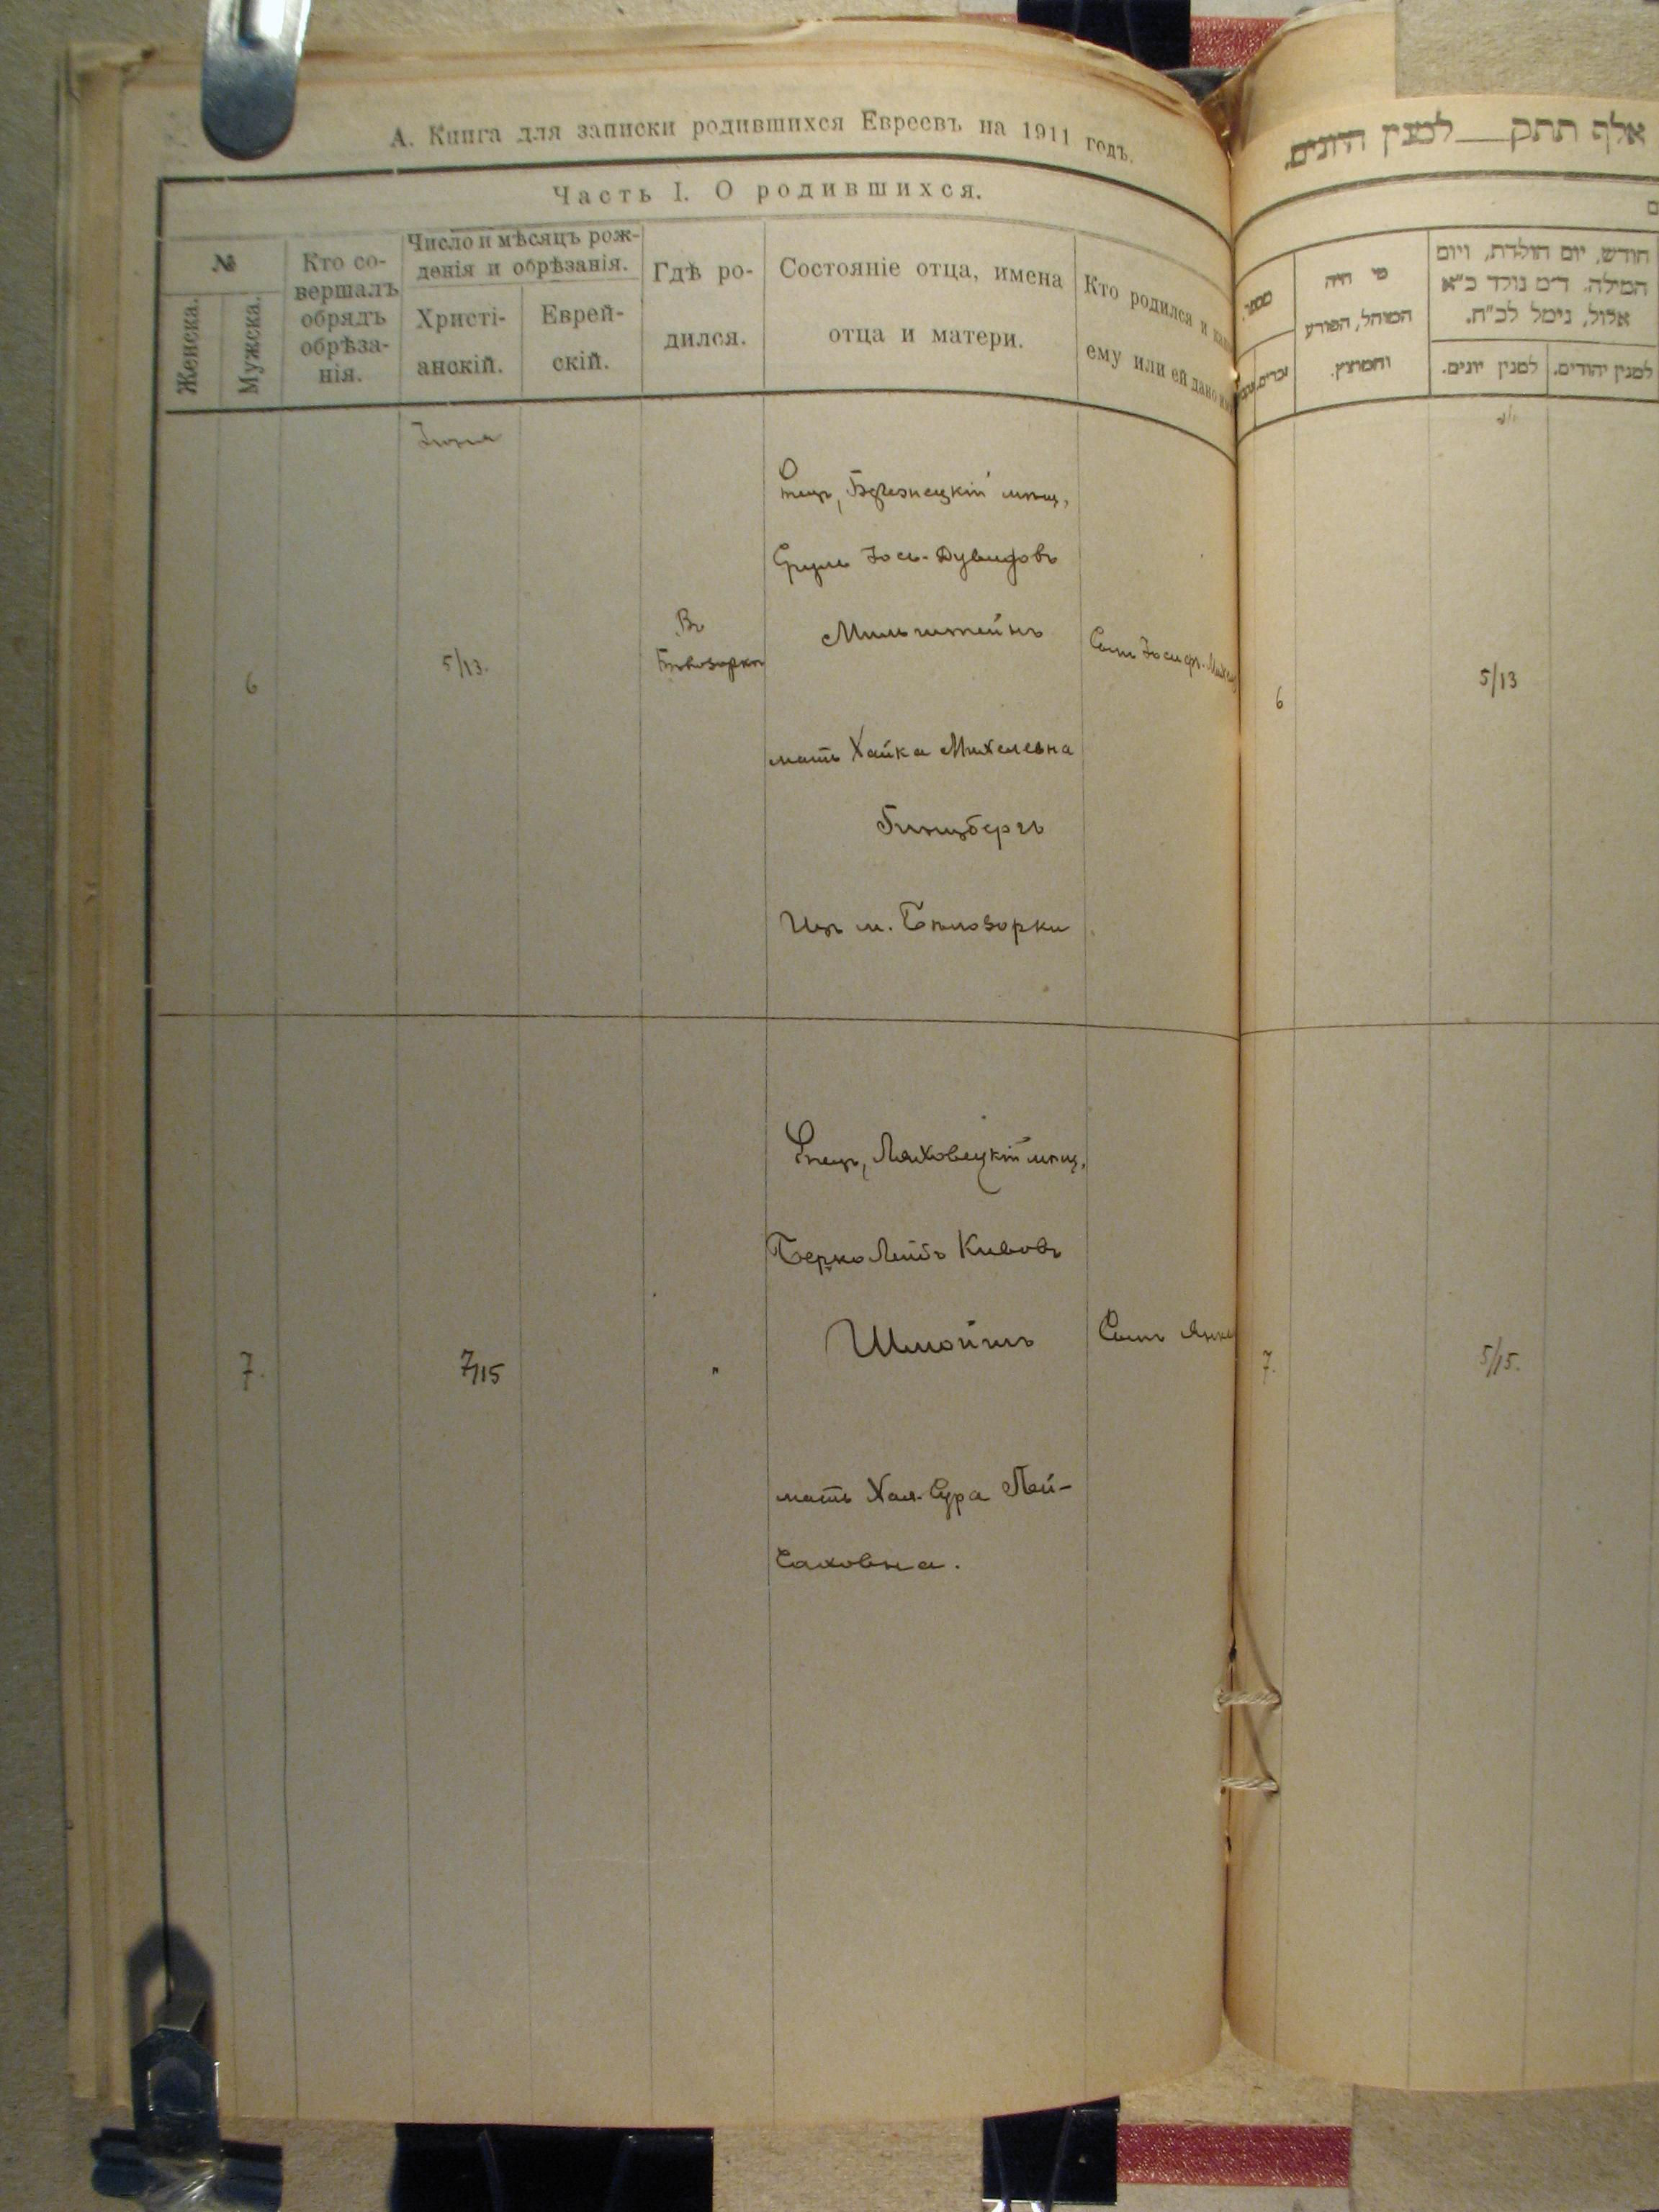 А. Книга для записки родившихся Евреевъ на 1911 годъ.
Часть I. О родившихся.
№
Женска.
Мужска.
Кто со-
вершалъ
обрядъ
обрѣза-
нія.
Число и мѣсяцъ рож-
денія и обрѣзанія.
Христі-
анскій.
Еврей-
скій.
Гдѣ ро-
дился.
Состояніе отца, имена
отца и матери.
Кто родился и
ему или ей дано
Іюня
6
5/13.
Въ
Бѣлозоркѣ
Отецъ, мѣщ,
Сруль Йось-Дувидовъ
Мильштейнъ
мать Хайка Михелевна
Гинцбергъ
Изъ м. Бѣлозорки
Сынъ Іосифъ
7.
7/15
"
Отецъ, Ляховецкій мѣщ,
Берко Лейбъ Кивовъ
Шмойшъ
мать Хая-Сура Пей-
саховна.
Сынъ
אלף תתק לסנין היונים.
מספר
זכרים
מי היה
המוהל, הפורע
והמוצץ.
חודש, יום הולדת, ויום
המילה. ד״מ נולד כ״א
אלול, נימל לכ״ח.
למנין יונים.
למנין יהודים.
6
5/13
7.
5/15.